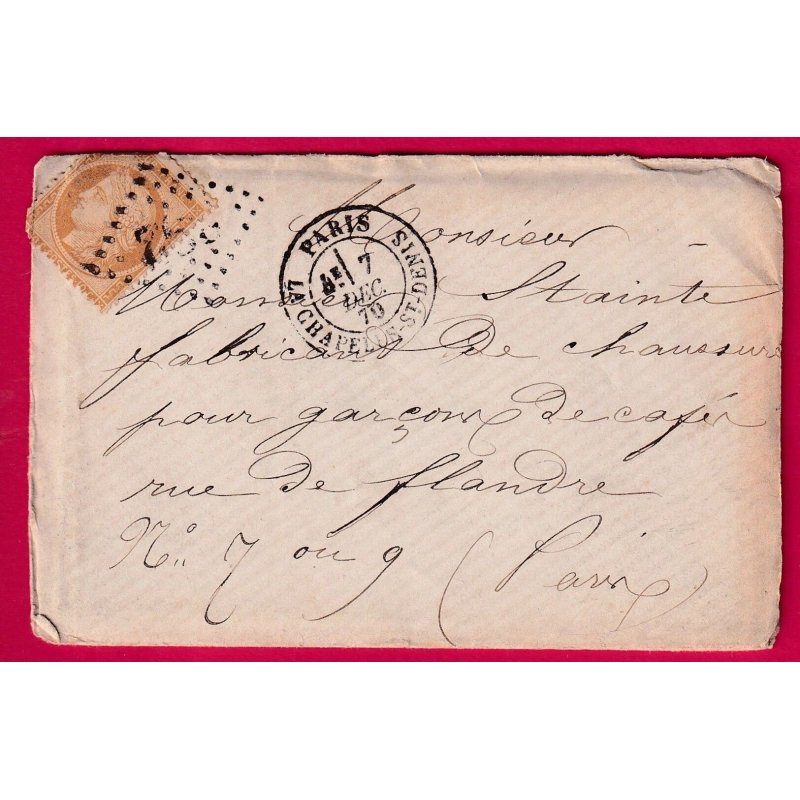 Monsieur
Monsieur Stainte
fabricant De chaussure
pour garçons De café
rue de flandre
N.° 7 ou 9 (Paris)
PARIS
LA CHAPELLE-ST-DENIS
1E 7
DEC.
70